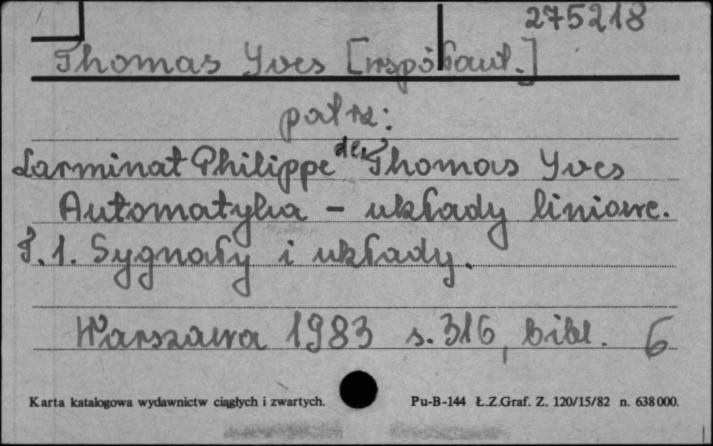 275218
Thomas Yves [współaut.]
patrz:
Larminat Philippe de, Thomas Yves
Automatyka - układy liniowe.
T.1. Sygnały i układy.
Warszawa 1983 s. 316, bibl. 6
Karta katalogowa wydawnictw ciągłych i zwartych. Pu-B-144 Ł.Z.Graf. Z. 120/15/82 n. 638000.